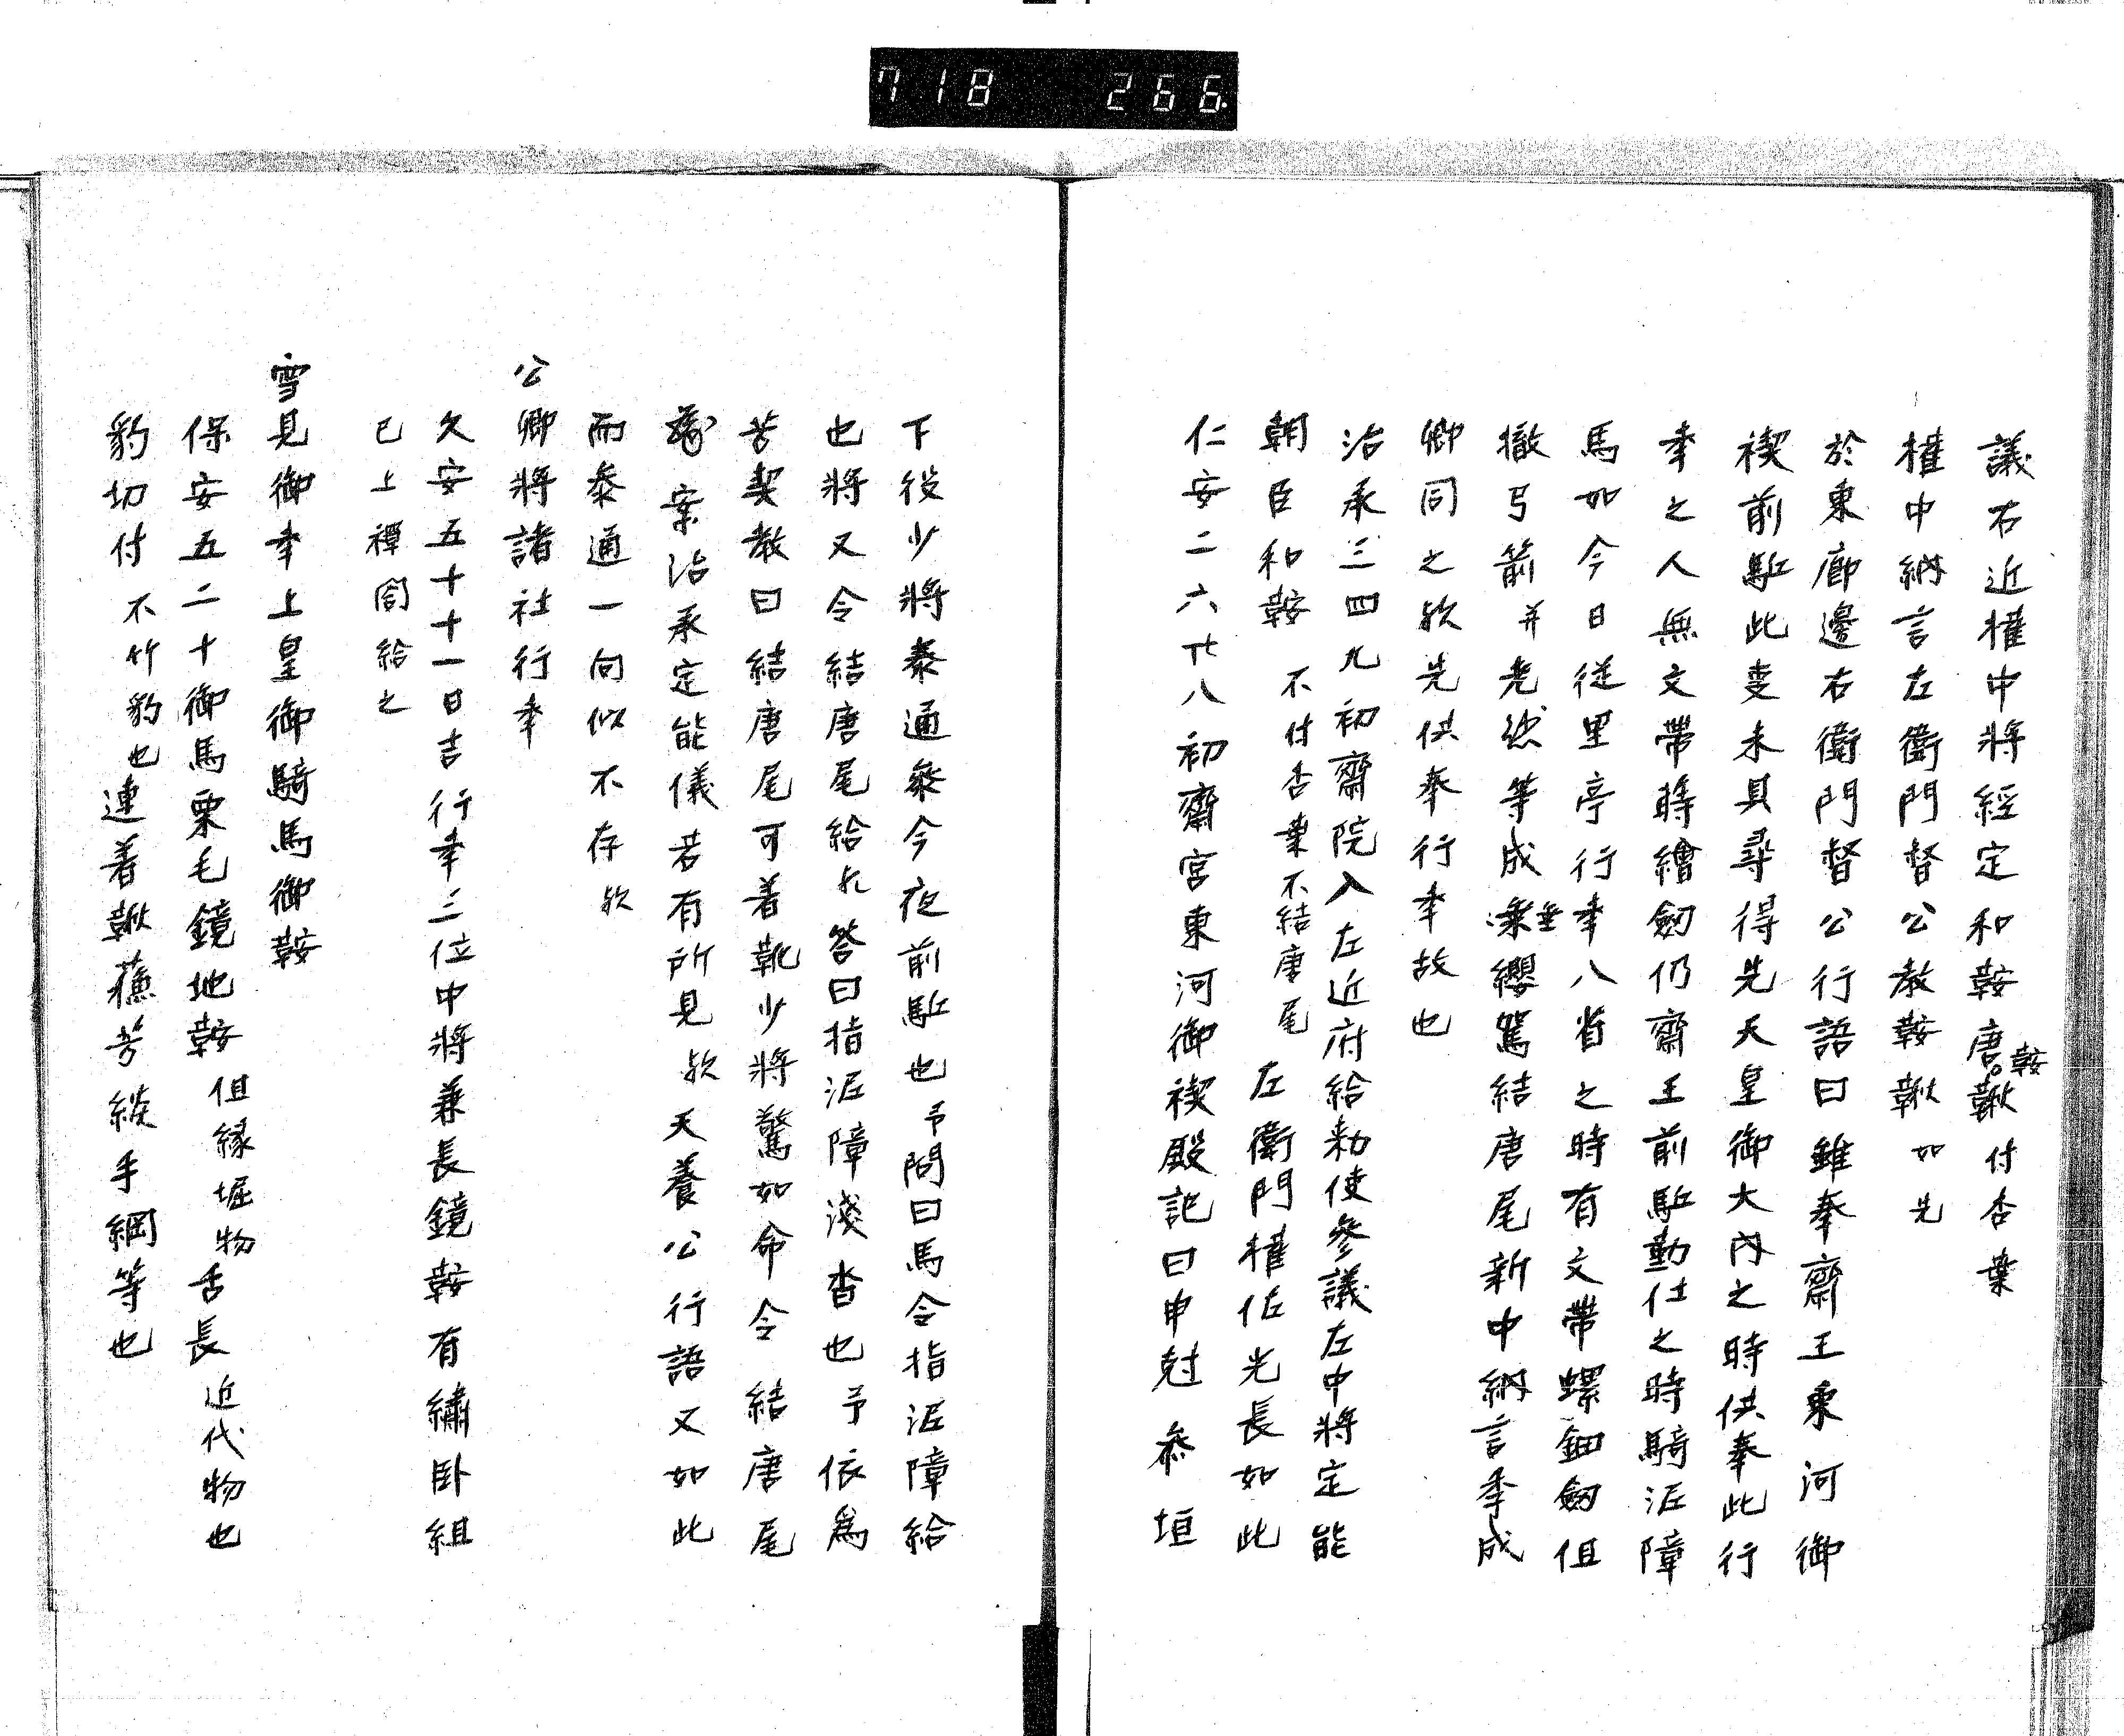 718 266
議右近権中將經定和鞍唐鞍鞦付杏葉
権中納言左衛門督公教鞍鞦如先
於東廊邊右衛門督公行語曰雖奉齋王東河御
禊前駈此支未具尋得先天皇御大内之時供奉此行
幸之人無文帯蒔繪劔仍齋王前駈勤仕之時騎泥障
馬如今日従里亭行幸八省之時有文帯螺鈿劔但
撤弓箭并老懸等成垂纓駕結唐尾新中納言季成
卿同之欤先供奉行幸故也
治承三四九初齋院入左近府給勅使參議左中將定能
朝臣和鞍不付杏葉不結唐尾左衛門権佐光長如此
仁安二六廿八初齋宮東河御禊殿記曰申尅参垣
下役少將泰通參今夜前駈也予問曰馬令指泥障給
也將又令結唐尾給欤答曰指泥障淺沓也予依爲
苦契教曰結唐尾可着靴少將驚如命令結唐尾
案治承定能儀若有所見欤天養公行語又如此
而泰通一向似不存欤
公卿將諸社行幸
久安五十十一日吉行幸三位中將兼長鏡鞍有繡卧組
已上禅閤給之
雪見御幸上皇御騎馬御鞍
保安五二十御馬栗毛鏡地鞍但縁堀物舌長近代物也
豹切付不竹豹也連着鞦蘓芳緂手綱等也